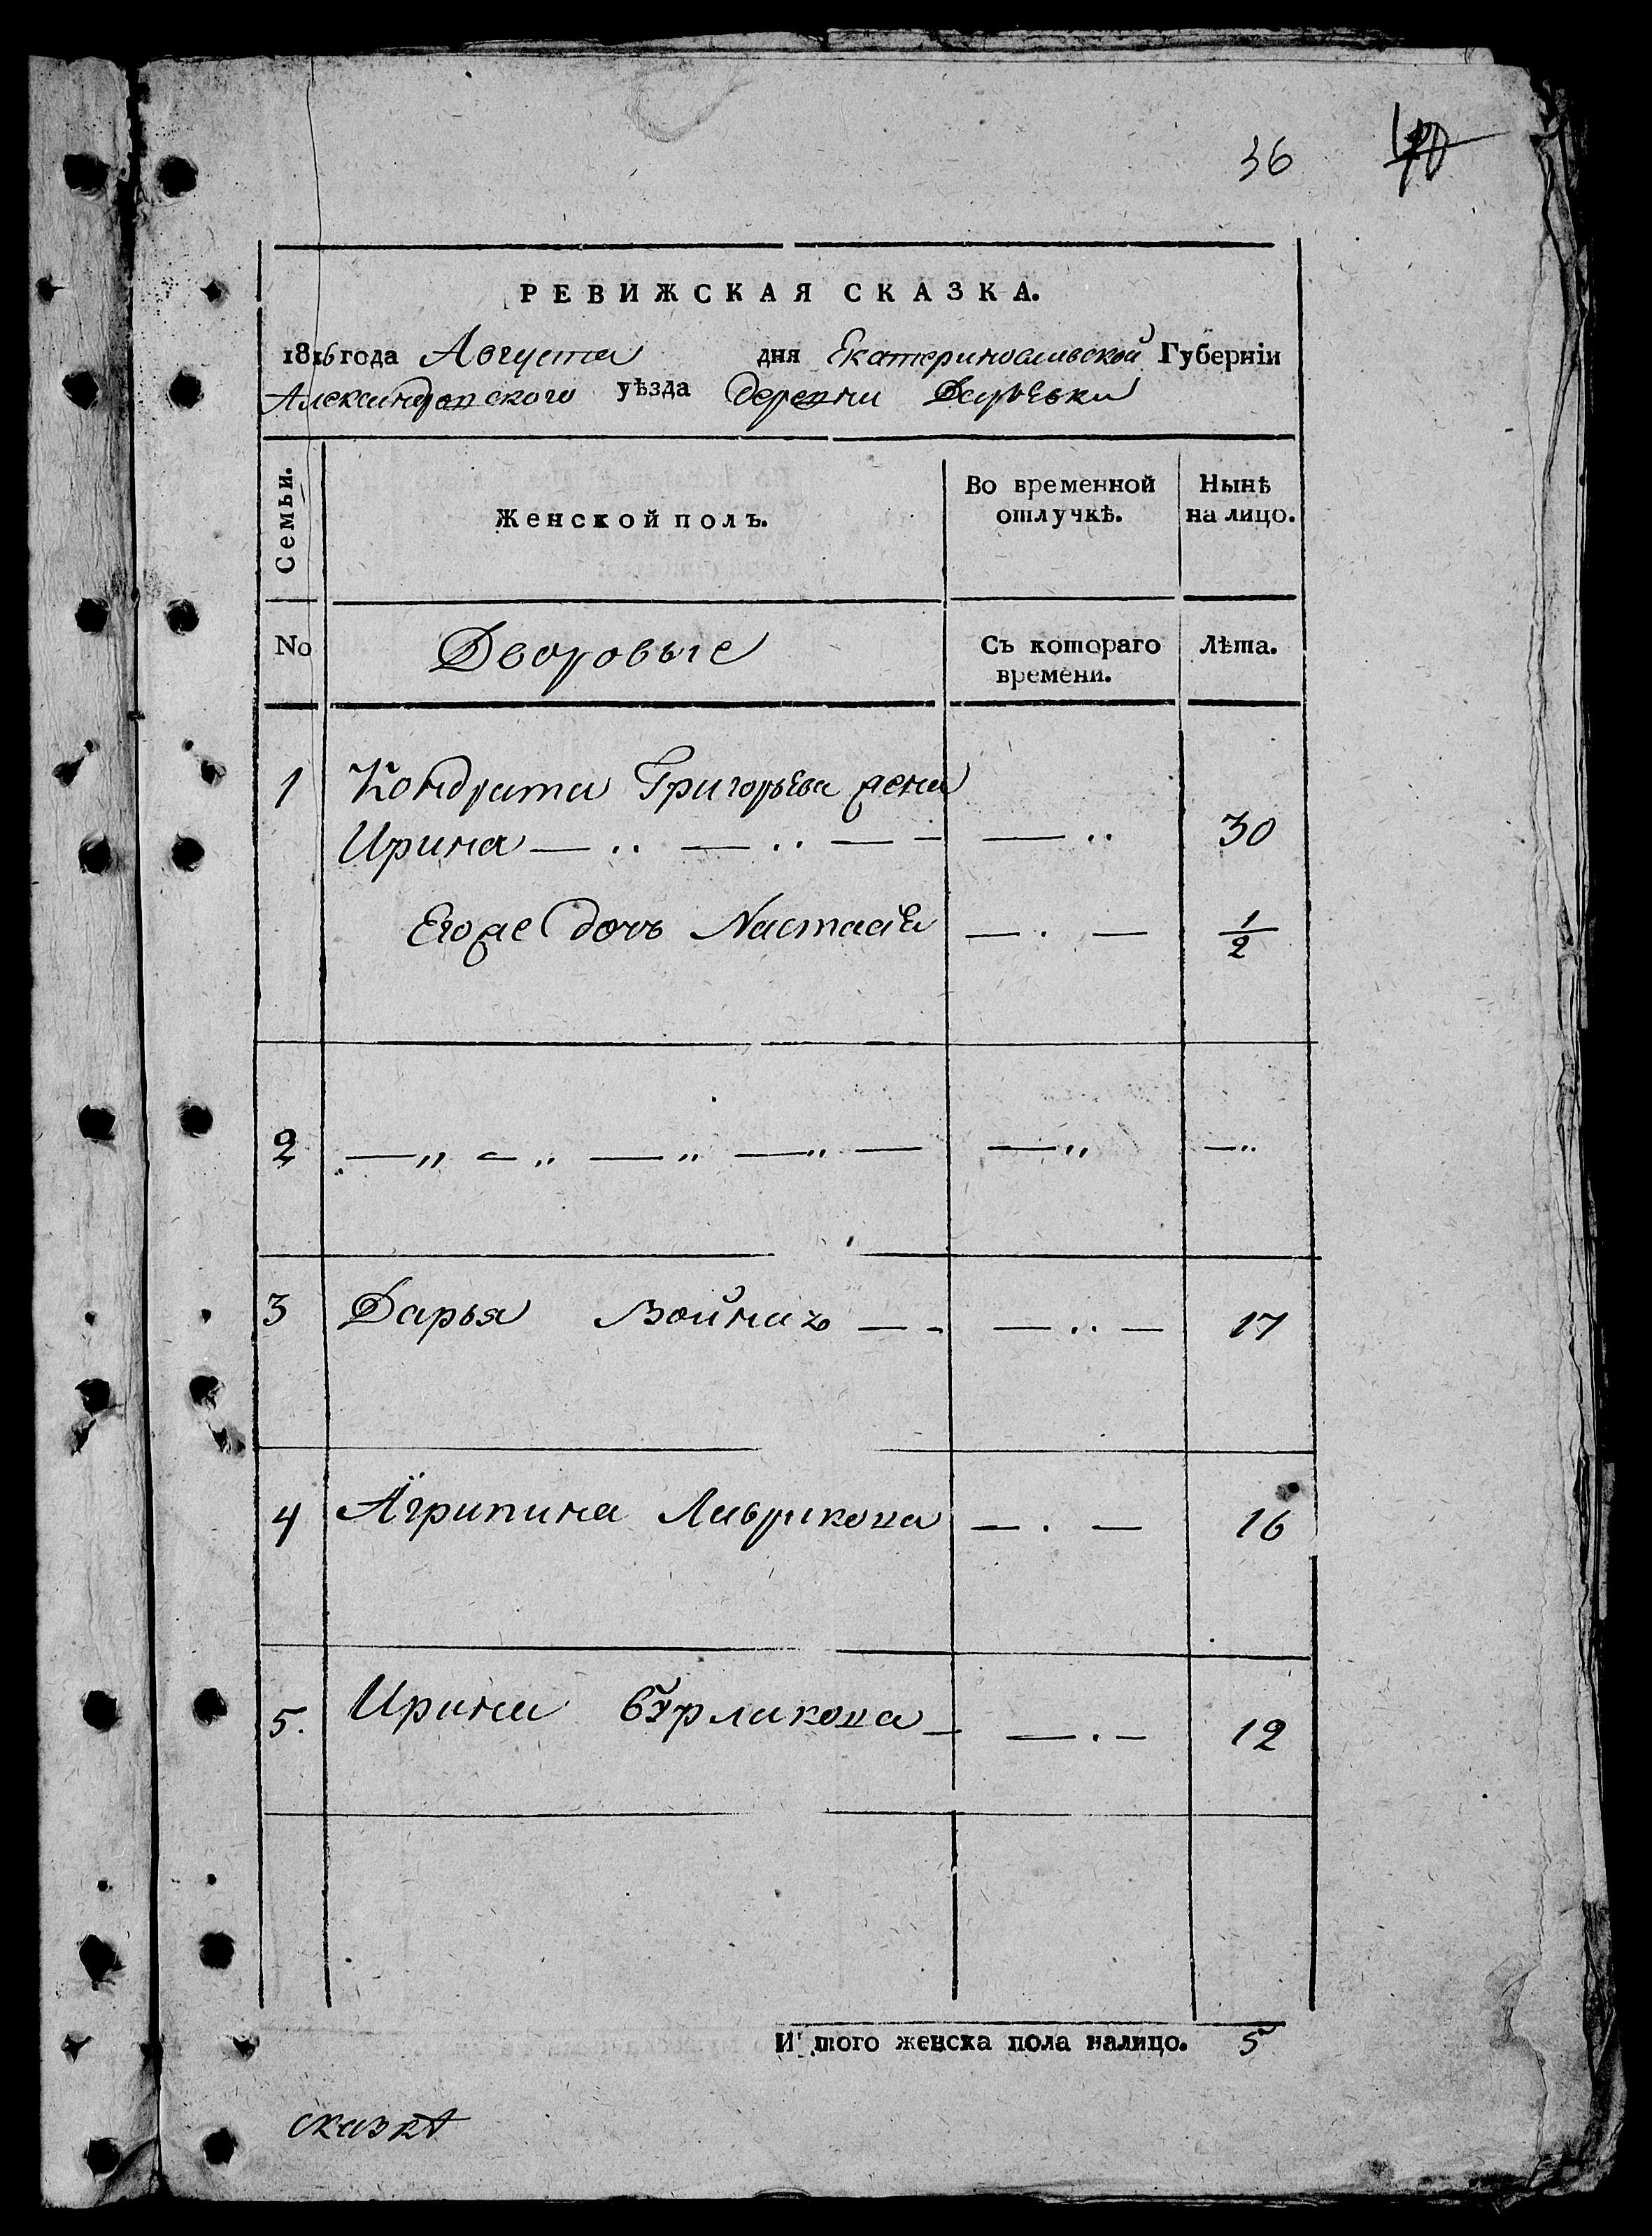 36 40
РЕВИЖСКАЯ СКАЗКА.
1816 года Августа дня Екатеринославской Губерніи
Александровского уѣзда деревни Дарьевки
Семьи. Женской полъ. Во временной отлучкѣ. Нынѣ на лицо.
No Дворовые Съ котораго времени. Лѣта.
1 Кондрата Григорьева жена
Ирина — .. — .. — — — .. 30
Егоже дочь Настасія — . — 1/2
2 — „ — „ — „ — „ — — „ — „
3 Дарья Войнах — - — .. — 17
4 Агрипина Лаврикова — . — 16
5. Ирина бурлакова — — . — 12
И того женска пола налицо. 5
сказка